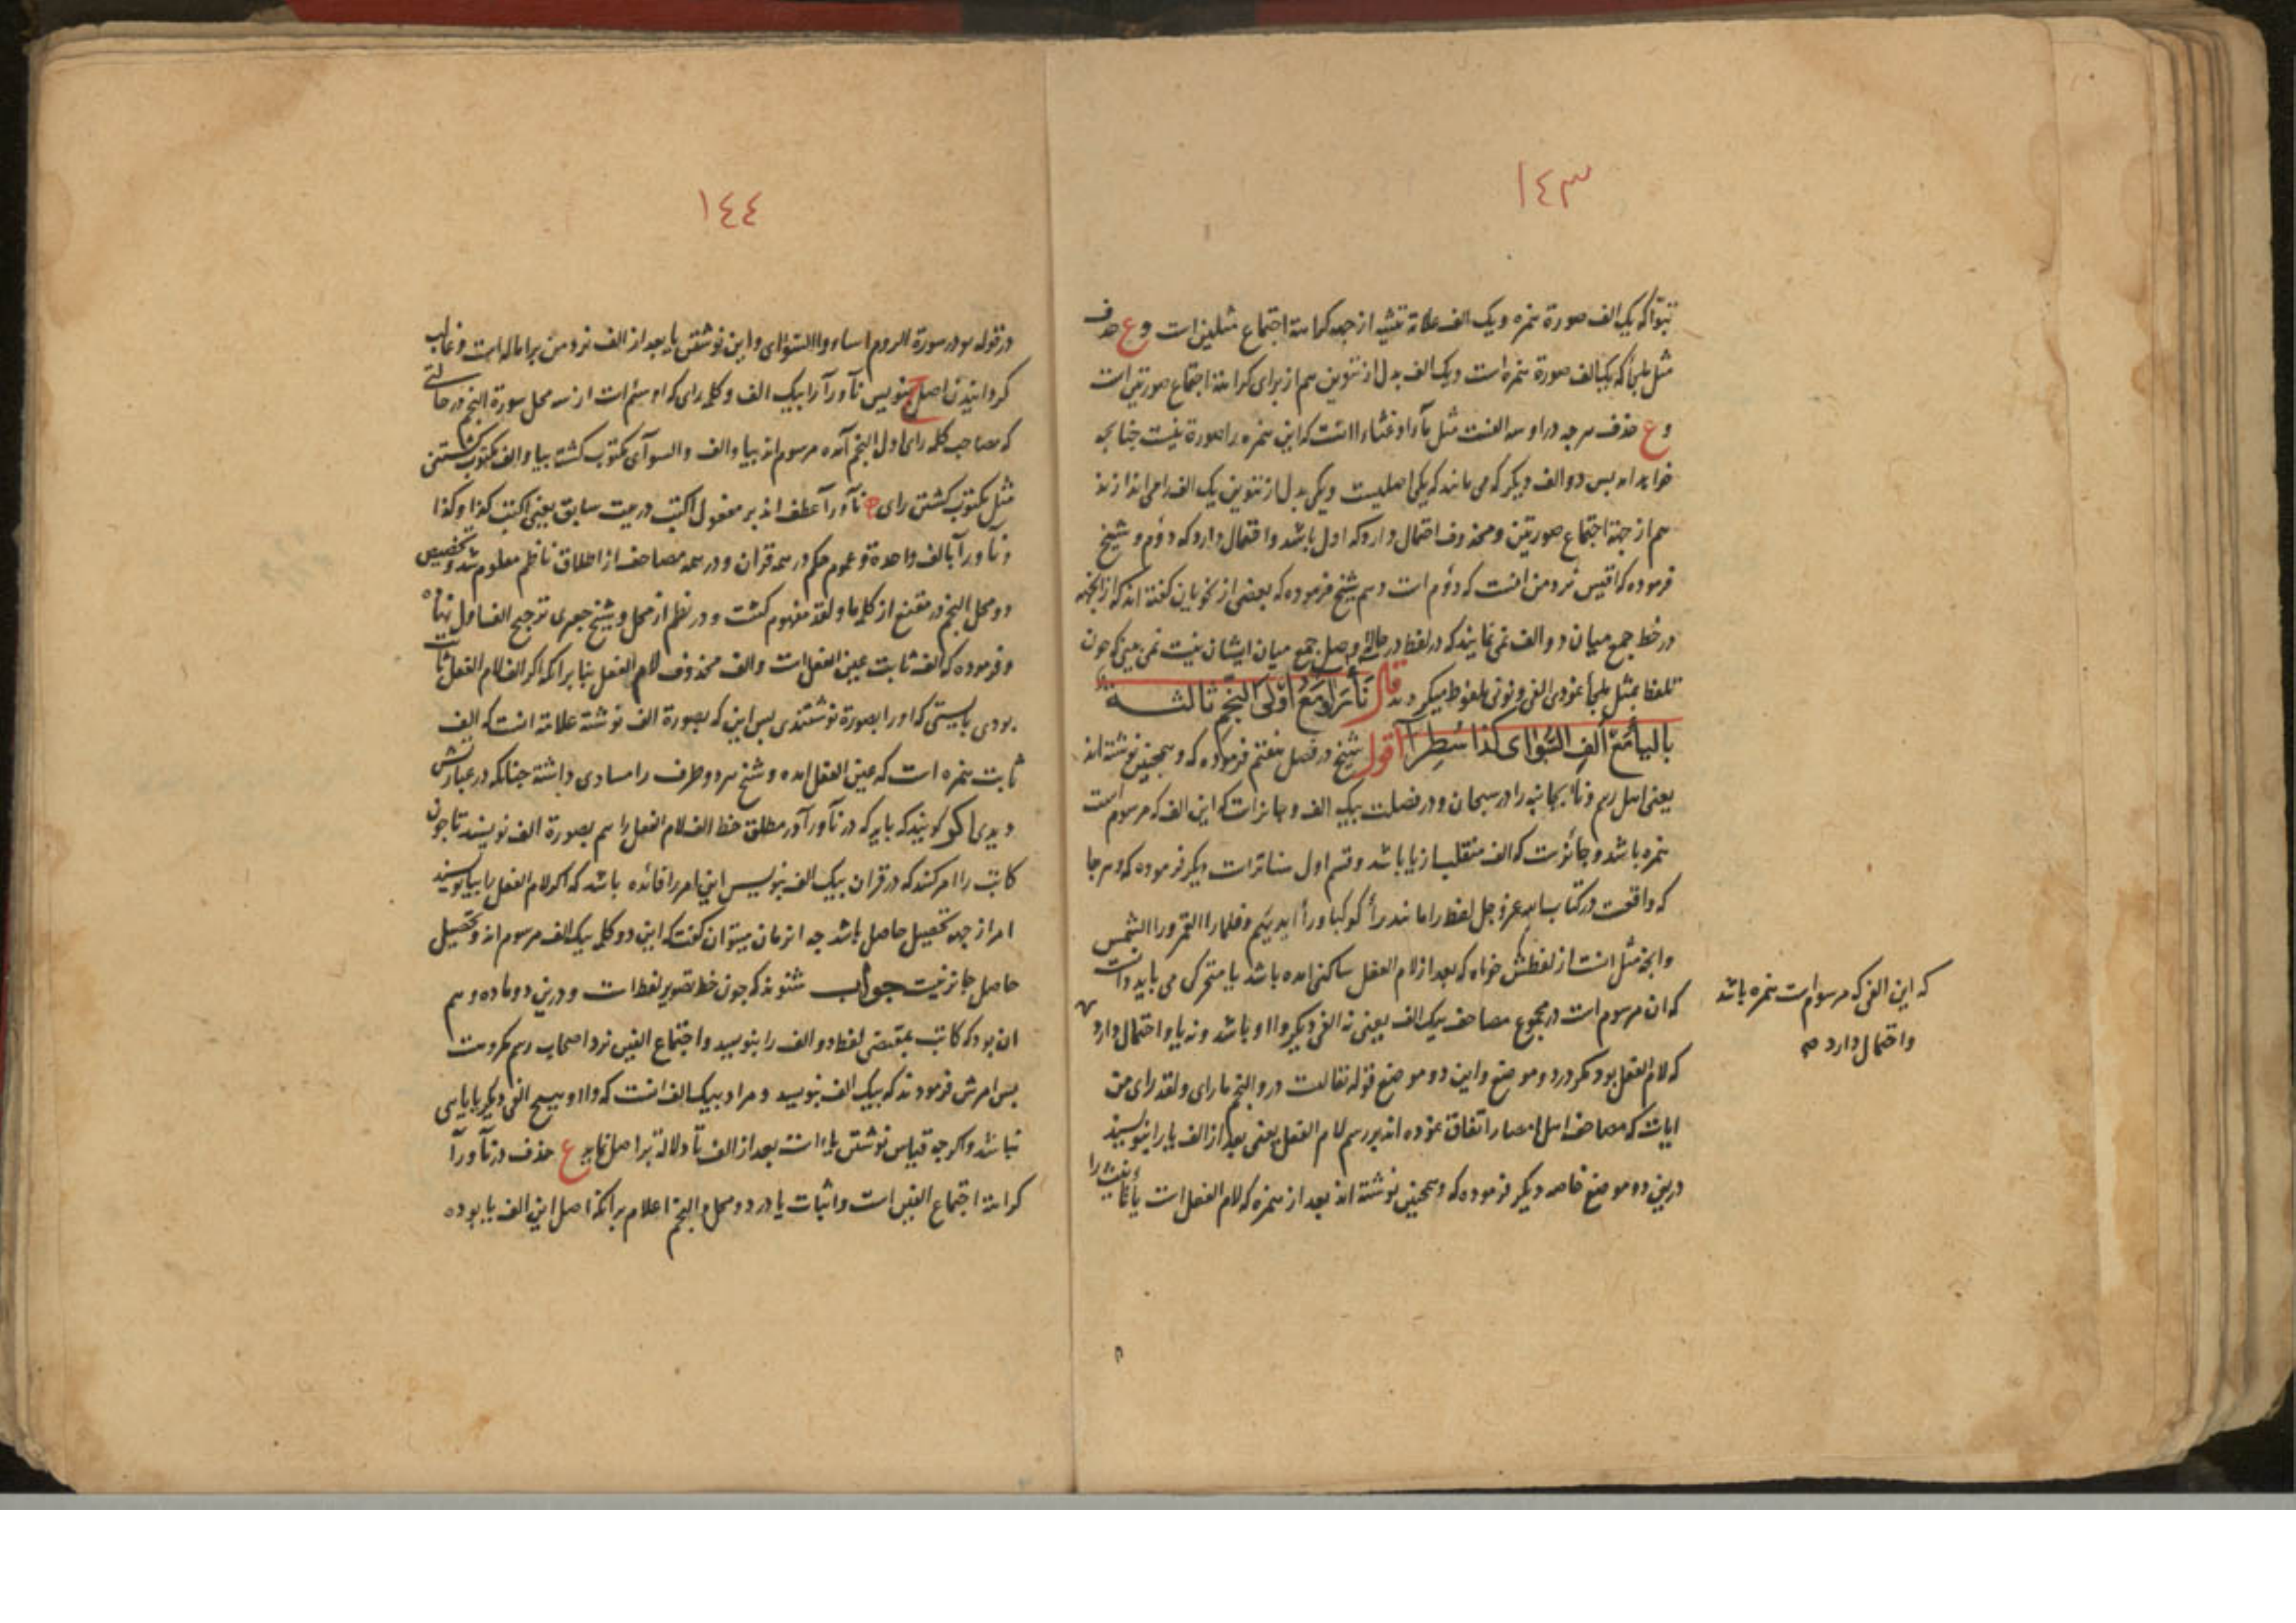 ١٤٣
تبوّا که یک الف صورة همزه و یک الف علامة تثنیه از جهه کراهتة اجتماع مثلین است وع حذف
مثل ملجأ که یک الف صورة همزه است و یک الف بدل از تنوین هم از برای کراهتة اجتماع صورتین است
وع حذف هرچه در او سه الفست مثل مآء او غثاء اانست که این همزه را صورة نیست چنانچه
خواهد امد بس دو الف دیکر که می مانند که یکی اصلیست ویکی بدل از تنوین یک الف را می اندازند
هم از جهة اجتماع صورتین و محذوف احتمال دارد که اول باشد و احتمال دارد که دوّم و شیخ
فرموده که اقیس نزد من انست که دوّم است و هم شیخ فرموده که بعضی از نحویان کفته اند که از انجهه
در خط جمع میان دو الف نمی نمایند که در لفظ در حالة وصل جمع میان ایشان نیست نمی بینی که چون
تلفظ بمثل ملجأ نمودی الفی و نونی ملفوظ میکردند قال نأى رأى مع اولى النجم ثالثة
بالیا مع الف السوأى کذا سطرا اقول شیخ در فصل هفتم فرموده که و همچنین نوشته اند
یعنی اهل رسم ونأى بجانبه را در سبحان و در فصلت بیک الف و جائز است که این الف که مرسوم است
همزه باشد و جائزست که الف منقلب از یا باشد و قسم اول
دیکر فرموده که و هرجا
که واقعست در کتاب الله عز و جل لفظ را مانند رأ کوکبا و رأ ایدیهم و فلما را القمر و را الشمس
وانچه مثل انست از لفظش خواه که بعد از لام الفعل ساکنی امده باشد یا متحرکی می باید دانست
که ان مرسوم است در مجموع مصاحف بیک الف یعنی نه الفی دیکر و ااو باشد و نه یا و احتمال دارد
که لام الفعل بود مکر در دو موضع و این دو موضع قوله تعالیست در و النجم ما رای و لقد رای من
ایات که مصاحف اهل امصار اتفاق نموده اند بر رسم لام الفعل یعنی بعد از الف یا را نیویسند
درین دو موضع خاصه دیکر فرموده که و همچنین نوشته اند بعد از همزه که لام الفعل است یا تانیث را
که این الفی که مرسوم است همزه باشد
و احتمال دارد صح
١٤٤
در قوله در سورة الروم اساءوا السوای و این نوشتن یا بعد از الف نزد من بر اماله است و غالب
کردانیدن اصل ح بنویس نآ و رآ را بیک الف و کلمه رای که او سیّم است از سه محل سورة النجم در حالتی
که مصاحب کلمه رای اول النجم آمده مرسوم اند بیا و الف و السوآی مکتوب کشت بیا و الف مکتوب کشتنی
مثل مکتوب کشتن رای نآ و رآ عطف اند بر مفعول اکتب در بیت سابق یعنی اکتب کذا و کذا
و نآ و رآ بالف واحدة و عموم حکم در همه قران و در همه مصاحف از اطلاق ناظم معلوم شد و تخصیص
دو محل النجم در مقنع از کلمه ما و لقد مفهوم کشت و در نظم از محل و شیخ جعبری ترجیح الف اول نهاده
و فرموده که الف ثابت عین الفعل است و الف محذوف لام الفعل بنا بر انکه اکر الف لام الفعل ثابت
بودی بایستی که او را بصورة نوشتندی بس این که بصورة الف نوشته علامة انست که الف
ثابت همزه است که عین الفعل امده و شیخ هر دو طرف را مساوی داشته چنانکه در عبارتش
دیدی اکر کویند که باید که در نآ و رآ در مطلق خط الف لام الفعل را هم بصورة الف نویسند تا چون
کاتب را امر کنند که در قران بیک الف بنویس این امر را فائده باشد که اکر لام الفعل را بیا نویسند
امر از جهه تحصیل حاصل باشد چه انزمان میتوان کفت که این دو کلمه بیک الف مرسوم اند و تحصیل
حاصل جائز نیست جواب شنوند که چون خط تصویر لفظ است و درین دو ماده وهم
ان بود که کاتب بمقتضی لفظ دو الف را بنویسد و اجتماع الفین نزد اصحاب رسم مکروهست
بس امرش فرمودند که بیک الف بنویسد و مراد بیک الف انست که و ااو هیچ الفی دیکر یا یایی
نباشد و اکر چه قیاس نوشتن یاء است بعد از الف تا دلالة بر اصل نماید ع حذف در نآ و رآ
کراهتة اجتماع الفین است و اثبات یا در دو محل و النجم اعلام بر انکه اصل این الف یا بوده